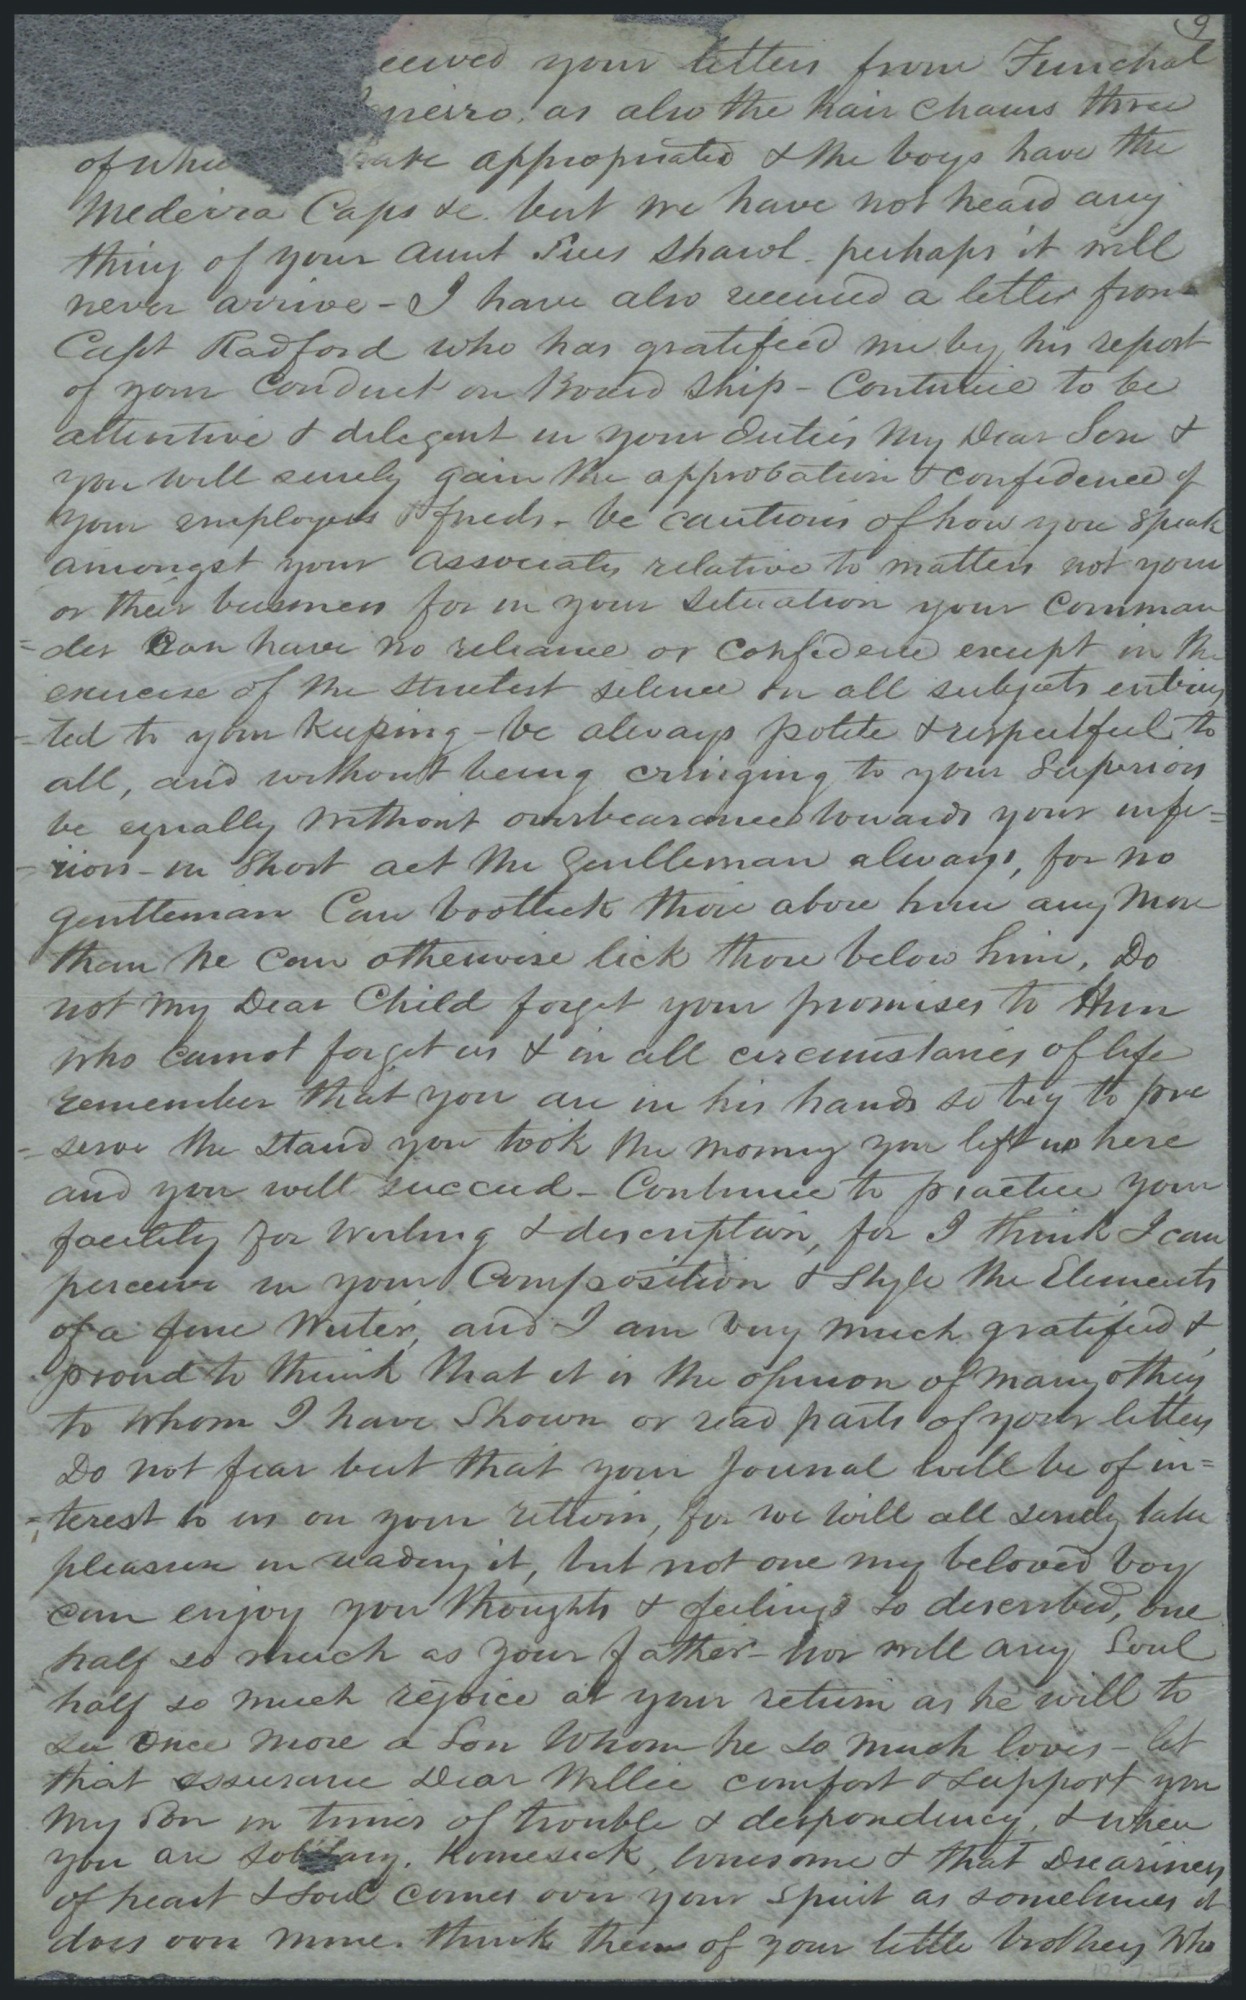 9
ceived your letters from Funchal
eneiro. as also the hair chains three
of whi have appropriated & the boys have the
Medeira Caps &c. but we have not heard any
thing of your Aunt Sues Shawl. perhaps it will
never arrive - I have also received a letter from
Capt Radford who has gratifeed me by his report
of your Conduct on Board Ship - Continue to be
attentive & delegent in your duties My Dear Son &
you will surely gain the approbation & confidence of
your employers & frieds - be cautious of how you speak
amongst your associates relative to matters not your
or their business for in your Situation your Comman
=der Can have no reliance or confidence except in the
exercise of the strictest silence on all subjects entrus
=ted to your Keeping - be always polite & respectful to
all, and without being cringing to your Superiors
be equally without overbearance towards your infe=
=riors - in Short act the Gentleman always, for no
gentleman Can bootlick those above him any More
than he Can otherwise lick those below him. Do
not My Dear Child forget your promises to Him
who cannot forget us & in all circumstances of life
remember that you are in his hands so try to pre
=serve the stand you took the morning you left us here
and you will succeed - Continue to practice your
facility for writing & description, for I think I can
perceive in your Composition & Style the Elements
of a fine Writer, and I am very much gratified &
proud to think that it is the opinion of many others
to whom I have Shown or read parts of your letters
Do not fear but that your Journal will be of in=
=terest to us on your return, for we will all surely take
pleasure in reading it, but not one my beloved boy
can enjoy you thoughts & feelings so described, one
half so much as your father - nor will any Soul
half so much rejoice at your return as he will to
see once more a Son Whom he so much loves - let
that assurance Dear Willie comfort & support you
My Son in times of trouble & despondency, & when
you are solitary. Homesick, lonesome & that Dreariness
of heart & soul comes over your spirit as sometimes it
does over mine. think them of your little brothers who